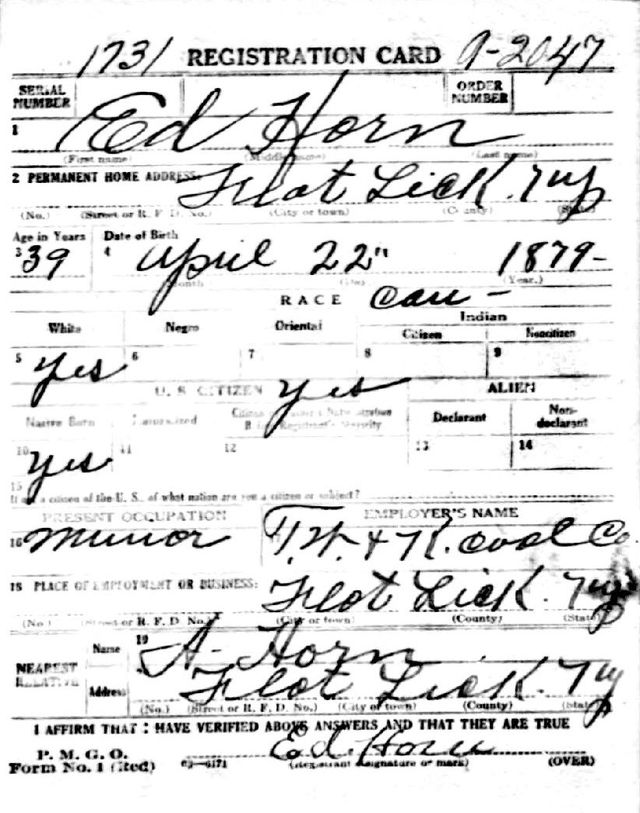 1731 REGISTRATION CARD A-2047
SERIAL NUMBER
ORDER NUMBER
1 Ed Horn
(First name) (Middle name) (Last name)
2 PERMANENT HOME ADDRESS: Flat Lick. Ky
(No.) (Street or R. F. D. No.) (City or town) (County) (State)
Age in Years Date of Birth
3 39 4 April 22" 1879-
(Month (Day (Year.)
RACE Cau -
White Negro Oriental Indian
Citizen Noncitizen
5 Yes 6 7 8 9
U. S. CITIZEN yes ALIEN
Native Born Naturalized Citizen by Father's Naturalization Before Registrant's Majority Declarant Non-declarant
10 yes 11 12 13 14
15
If not a citizen of the U. S., of what nation are you a citizen or subject?
PRESENT OCCUPATION EMPLOYER'S NAME
16 Minor & K. Coal Co.
18 PLACE OF EMPLOYMENT OR BUSINESS: Flat Lick. Ky
(No.) (Street or R. F. D. No.) (City or town) (County) (State)
NEAREST RELATIVE
Name 19 A- Horn
Address Flat Lick. Ky
(No.) (Street or R. F. D. No.) (City or town) (County) (State)
I AFFIRM THAT I HAVE VERIFIED ABOVE ANSWERS AND THAT THEY ARE TRUE
P. M. G. O.
Form No. 1 (Red) 03—6171 Ed. Horn
(Registrant signature or mark) (OVER)